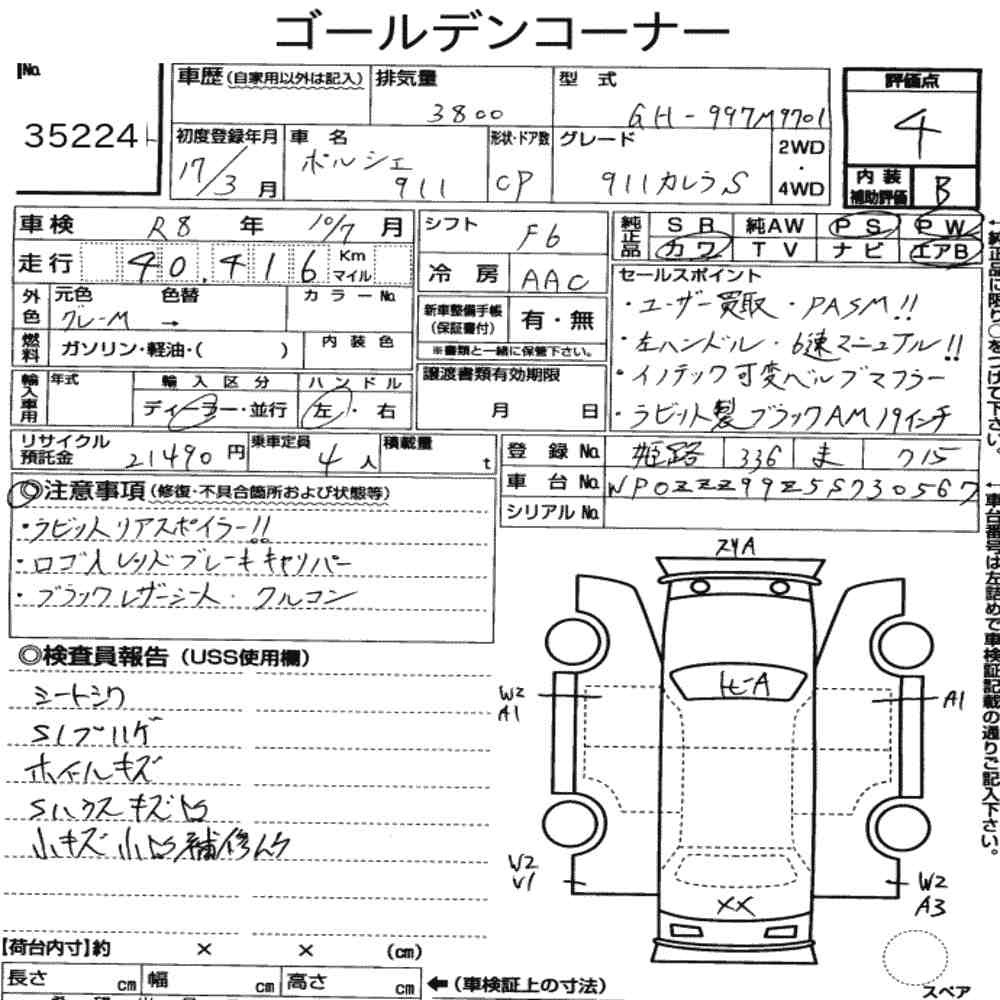 ゴールデンコーナー
No.
35224
車歴(自家用以外は記入)
排気量
3800
型式
GH-997M9701
評価点
4
初度登録年月
17/3月
車名
ポルシェ
911
形状・ドア数
CP
グレード
911カレラS
2WD
・
4WD
内装
補助評価
B
車検 R8年 10/7月
走行 40,416 Km
マイル
シフト F6
冷房 AAC
純正品 SB 純AW PS PW
カワ TV ナビ エアB
←純正品に限り○をつけて下さい。
外色 元色 色替 カラーNo.
グレーM →
燃料 ガソリン・軽油・( )
内装色
新車整備手帳
(保証書付)
有・無
※書類と一緒に保管下さい。
輸入車用 年式
輸入区分
ディーラー・並行
ハンドル
左・右
譲渡書類有効期限
月 日
セールスポイント
・ユーザー買取・PASM!!
・左ハンドル・6速マニュアル!!
・イノテック可変バルブマフラー
・ラビット製ブラックAM19インチ
リサイクル
預託金 21490円
乗車定員 4人
積載量 t
登録No. 姫路 336 ま 715
車台No. WP0ZZZ99Z5S730567
シリアルNo.
←車台番号は左詰めで車検証記載の通りご記入下さい。
◎注意事項(修復・不具合箇所および状態等)
・ラビットリアスポイラー!!
・ロゴ入レッドブレーキキャリパー
・ブラックレザーシート・クルコン
◎検査員報告(USS使用欄)
シートシワ
Sレブハゲ
ホイールキズ
キズ
小キズ 補修
スリA
ヒーA
W2
A1
A1
W2
V1
W2
A3
XX
スペア
【荷台内寸】約 × × (cm)
長さ cm 幅 cm 高さ cm ←(車検証上の寸法)